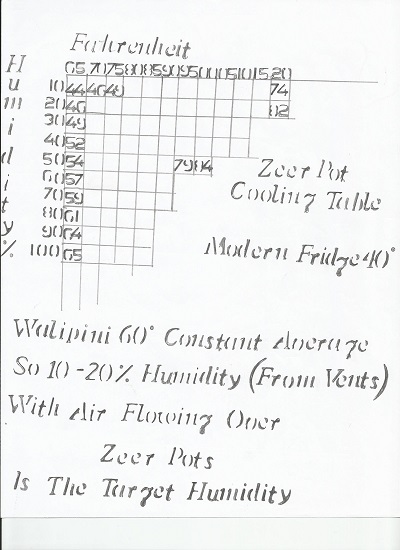 Fahrenheit
Humidity %
65 70 75 80 85 90 95 100 105 110 115 120
10 44 46 49 74
20 46 82
30 49
40 52
50 54 79 84
60 57
70 59
80 61
90 64
100 65
Zeer Pot
Cooling Table
Modern Fridge 40°
Walipini 60° Constant Average
So 10-20% Humidity (From Vents)
With Air Flowing Over
Zeer Pots
Is The Target Humidity